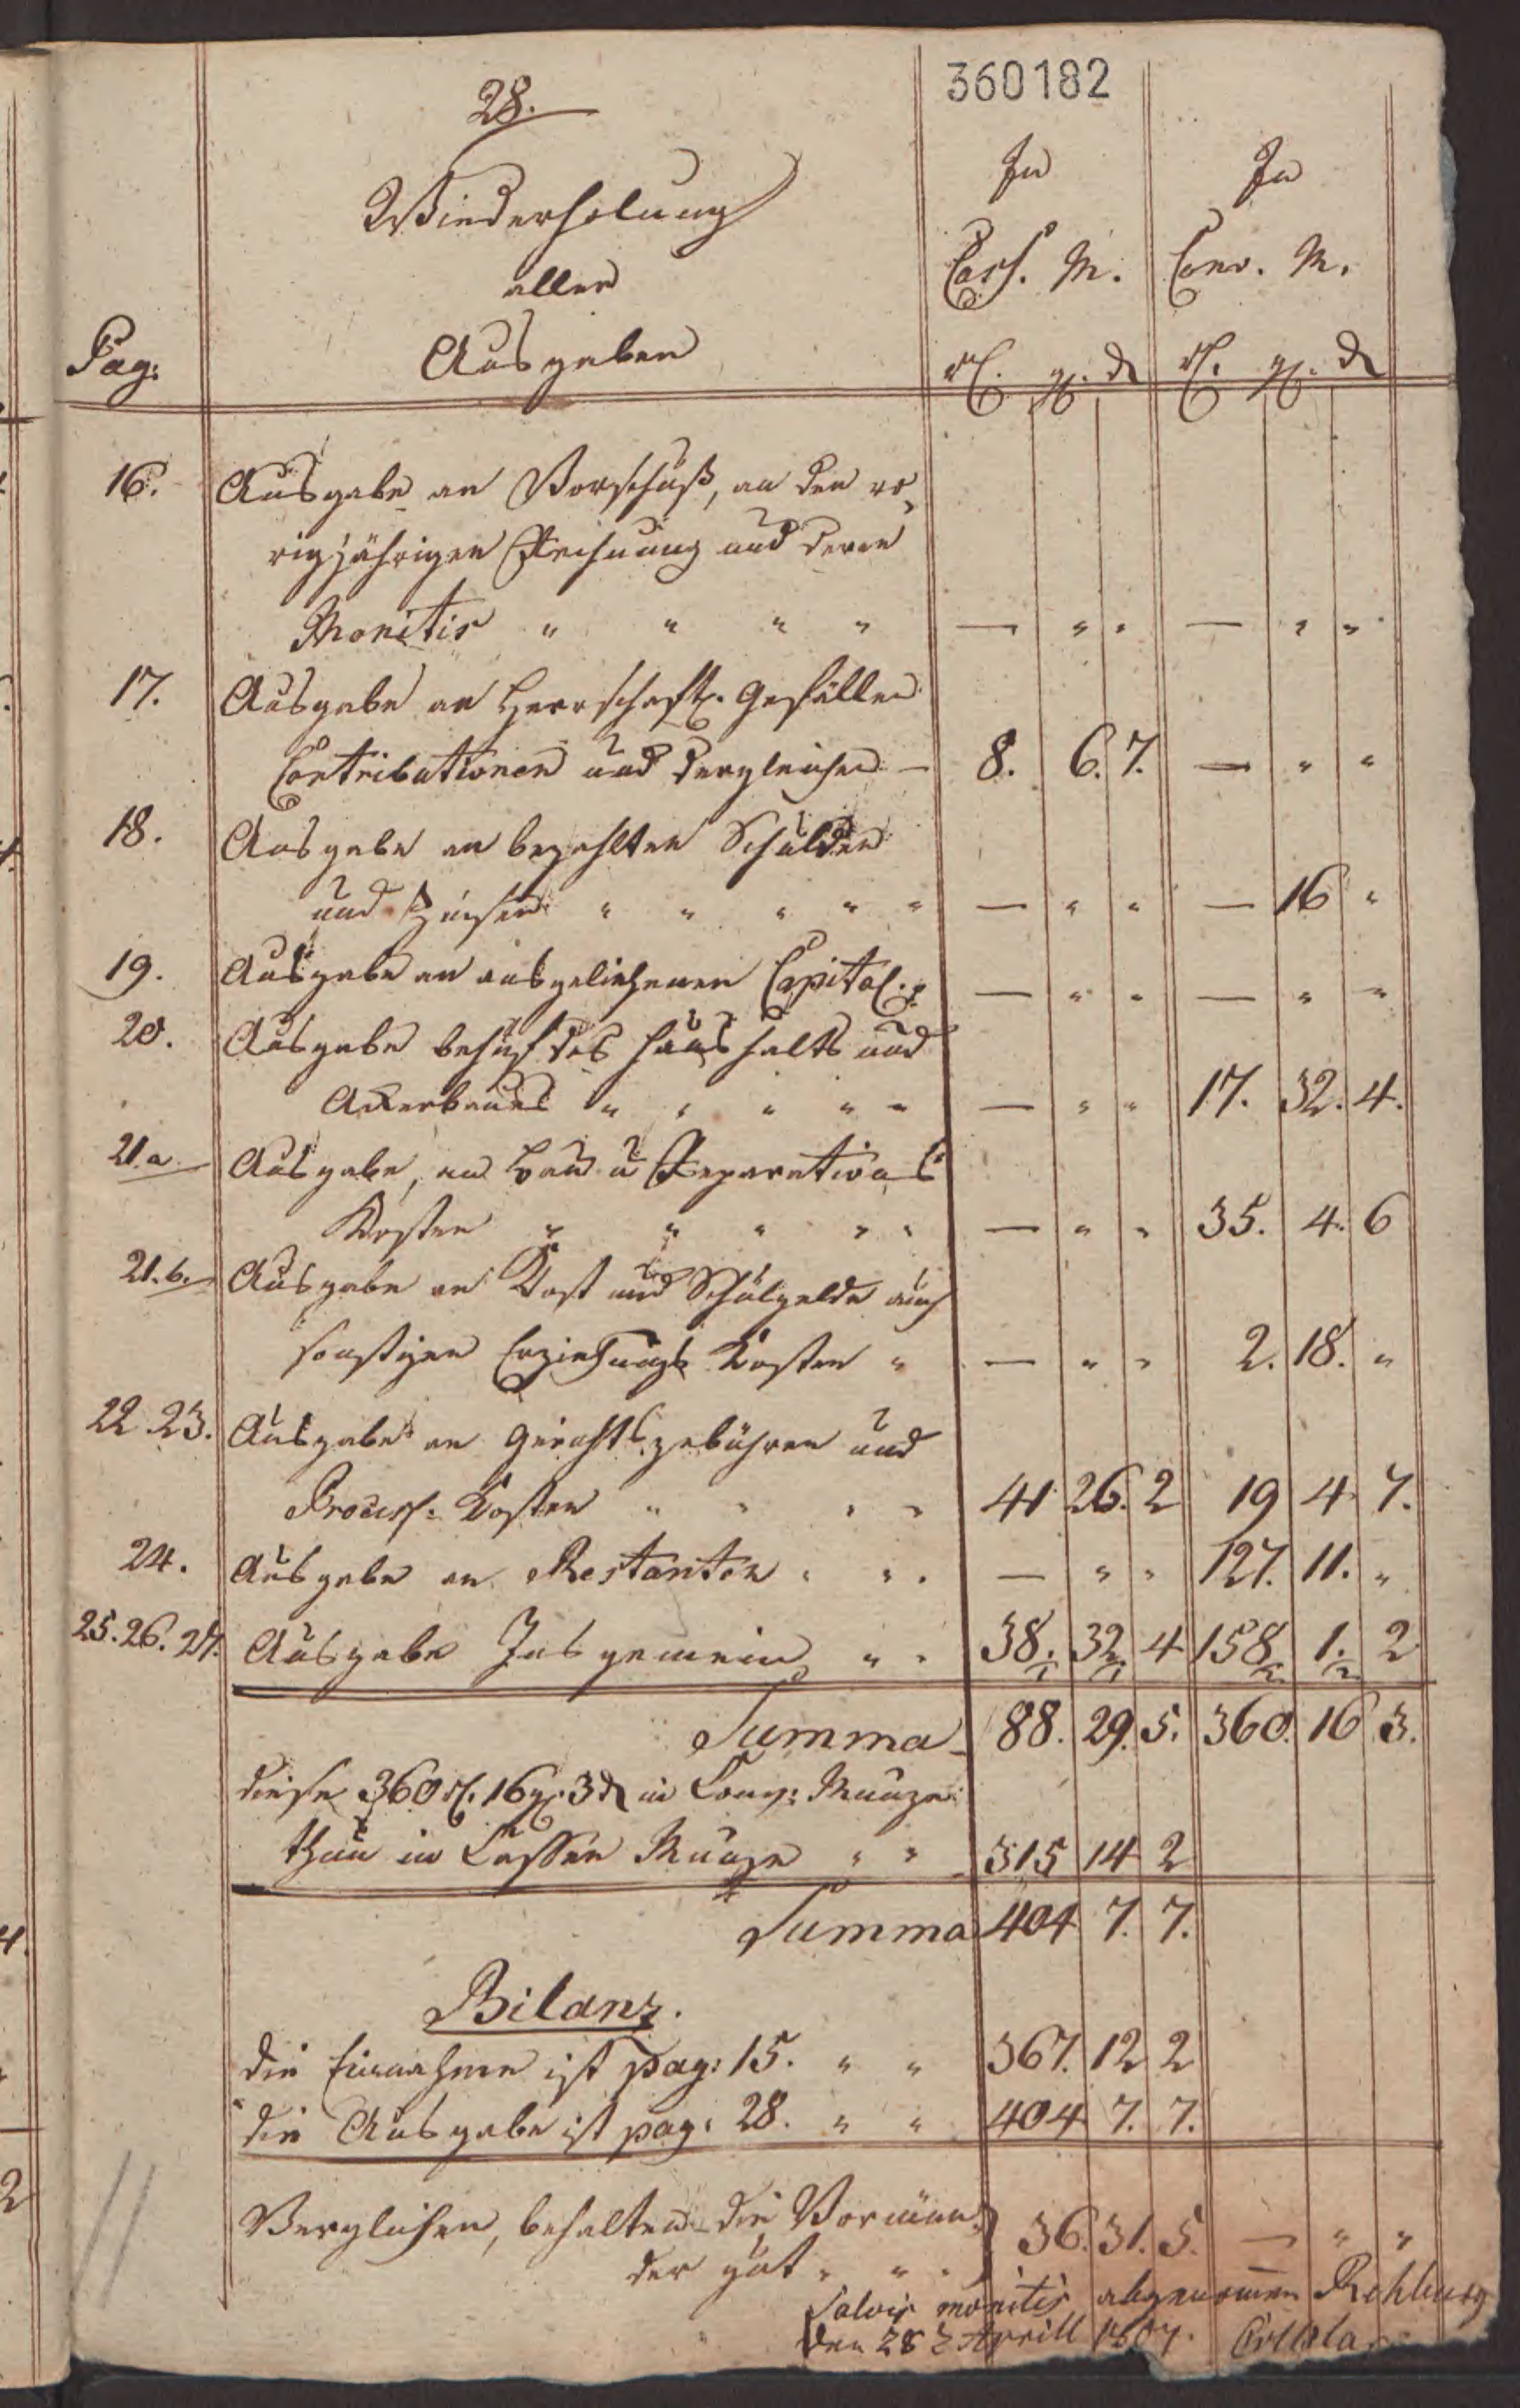 360182
28.
Wiederholung
aller
Ausgaben
Pag:
In In
Cass. M. Conv. M.
rl. gl. d rl. gl. d
16. Ausgabe an Vorschuß, an den vo-
rigjährigen Rechnung und deren
Monitis " " " " — " " — " "
17. Ausgabe an Herrschaftl. Gefällen
Contributionen und dergleichen — 8. 6. 7. — " "
18. Ausgabe an bezahlten Schulden
und Zinsen " " " " " — " " — 16 "
19. Ausgabe an ausgeliehenen Capital. — " " — " "
20. Ausgabe behuf des Haushalts und
Ackerbaues " " " " " — " " 17. 32. 4.
21.a. Ausgabe, an Bau u Reparations
Kosten " " " " " — " " 35. 4. 6
21.b. Ausgabe an Kost und Schulgelde auch
sonstigen Erziehungs Kosten " — " " 2. 18. "
22. 23. Ausgabe an Gerichtsgebühren und
Process: Kosten " " " " 41 26. 2 19 4 7.
24. Ausgabe an Restanten " " " — " " 127. 11. "
25. 26. 27. Ausgabe Insgemein " " 38. 32. 4 158 1. 2
Summa 88. 29. 5. 360. 16 3.
diese 360 rl. 16 gl. 3 d in Conv: Münze
thun in Cassen Münze " " 315 14 2
Summa 404 7. 7.
Bilanz.
die Einnahme ist pag: 15. " " 367. 12 2
die Ausgabe ist pag: 28. " " 404 7. 7.
Verglichen, behalten die Vormün-
der gut " " " 36. 31. 5. — " "
Salvis monitis abgenommen Rehburg
den 28 t Aprill 1807.